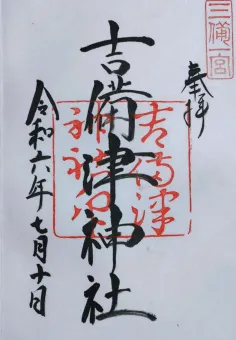 三備一宮
奉拝
吉備津神社
吉備津
神社之印
令和六年七月十日